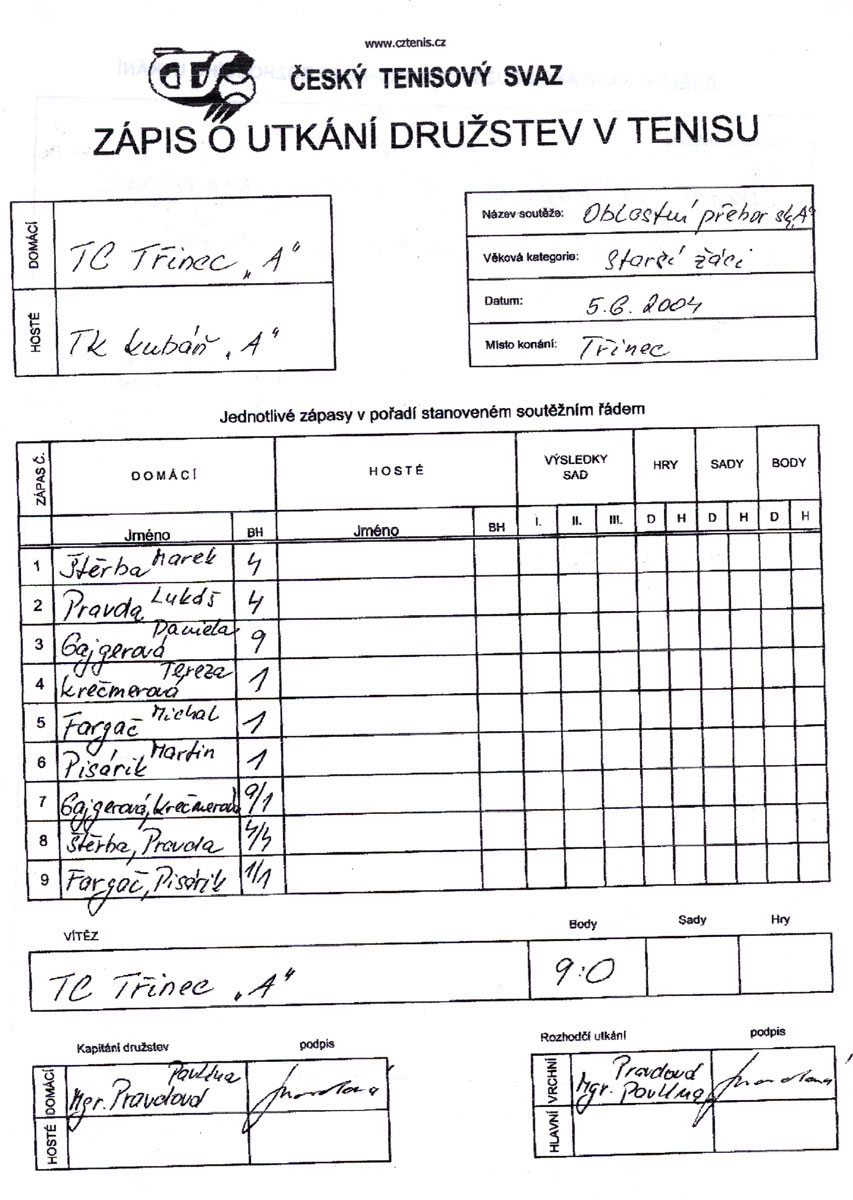 www.cztenis.cz
ČESKÝ TENISOVÝ SVAZ
ZÁPIS O UTKÁNÍ DRUŽSTEV V TENISU
DOMÁCÍ TC Třinec „A"
HOSTÉ TK kubáň „A"
Název soutěže: Oblastní přebor sk„A"
Věková kategorie: Starší žáci
Datum: 5.6.2004
Místo konání: Třinec
Jednotlivé zápasy v pořadí stanoveném soutěžním řádem
ZÁPAS Č. DOMÁCÍ HOSTÉ VÝSLEDKY SAD HRY SADY BODY
Jméno BH Jméno BH I. II. III. D H D H D H
1 Štěrba Marek 4
2 Pravda Lukáš 4
3 Gajgerová Daniela 9
4 Krečmerová Tereza 1
5 Fargač Michal 1
6 Pisárik Martin 1
7 Gajgerová, Krečmerová 9/1
8 Štěrba, Pravda 4/4
9 Fargač, Pisárik 1/1
VÍTĚZ Body Sady Hry
TC Třinec „A" 9:0
Kapitáni družstev podpis
DOMÁCÍ Mgr. Pravdová Pavlína
HOSTÉ
Rozhodčí utkání podpis
VRCHNÍ Pravdová
Mgr. Pavlína
HLAVNÍ